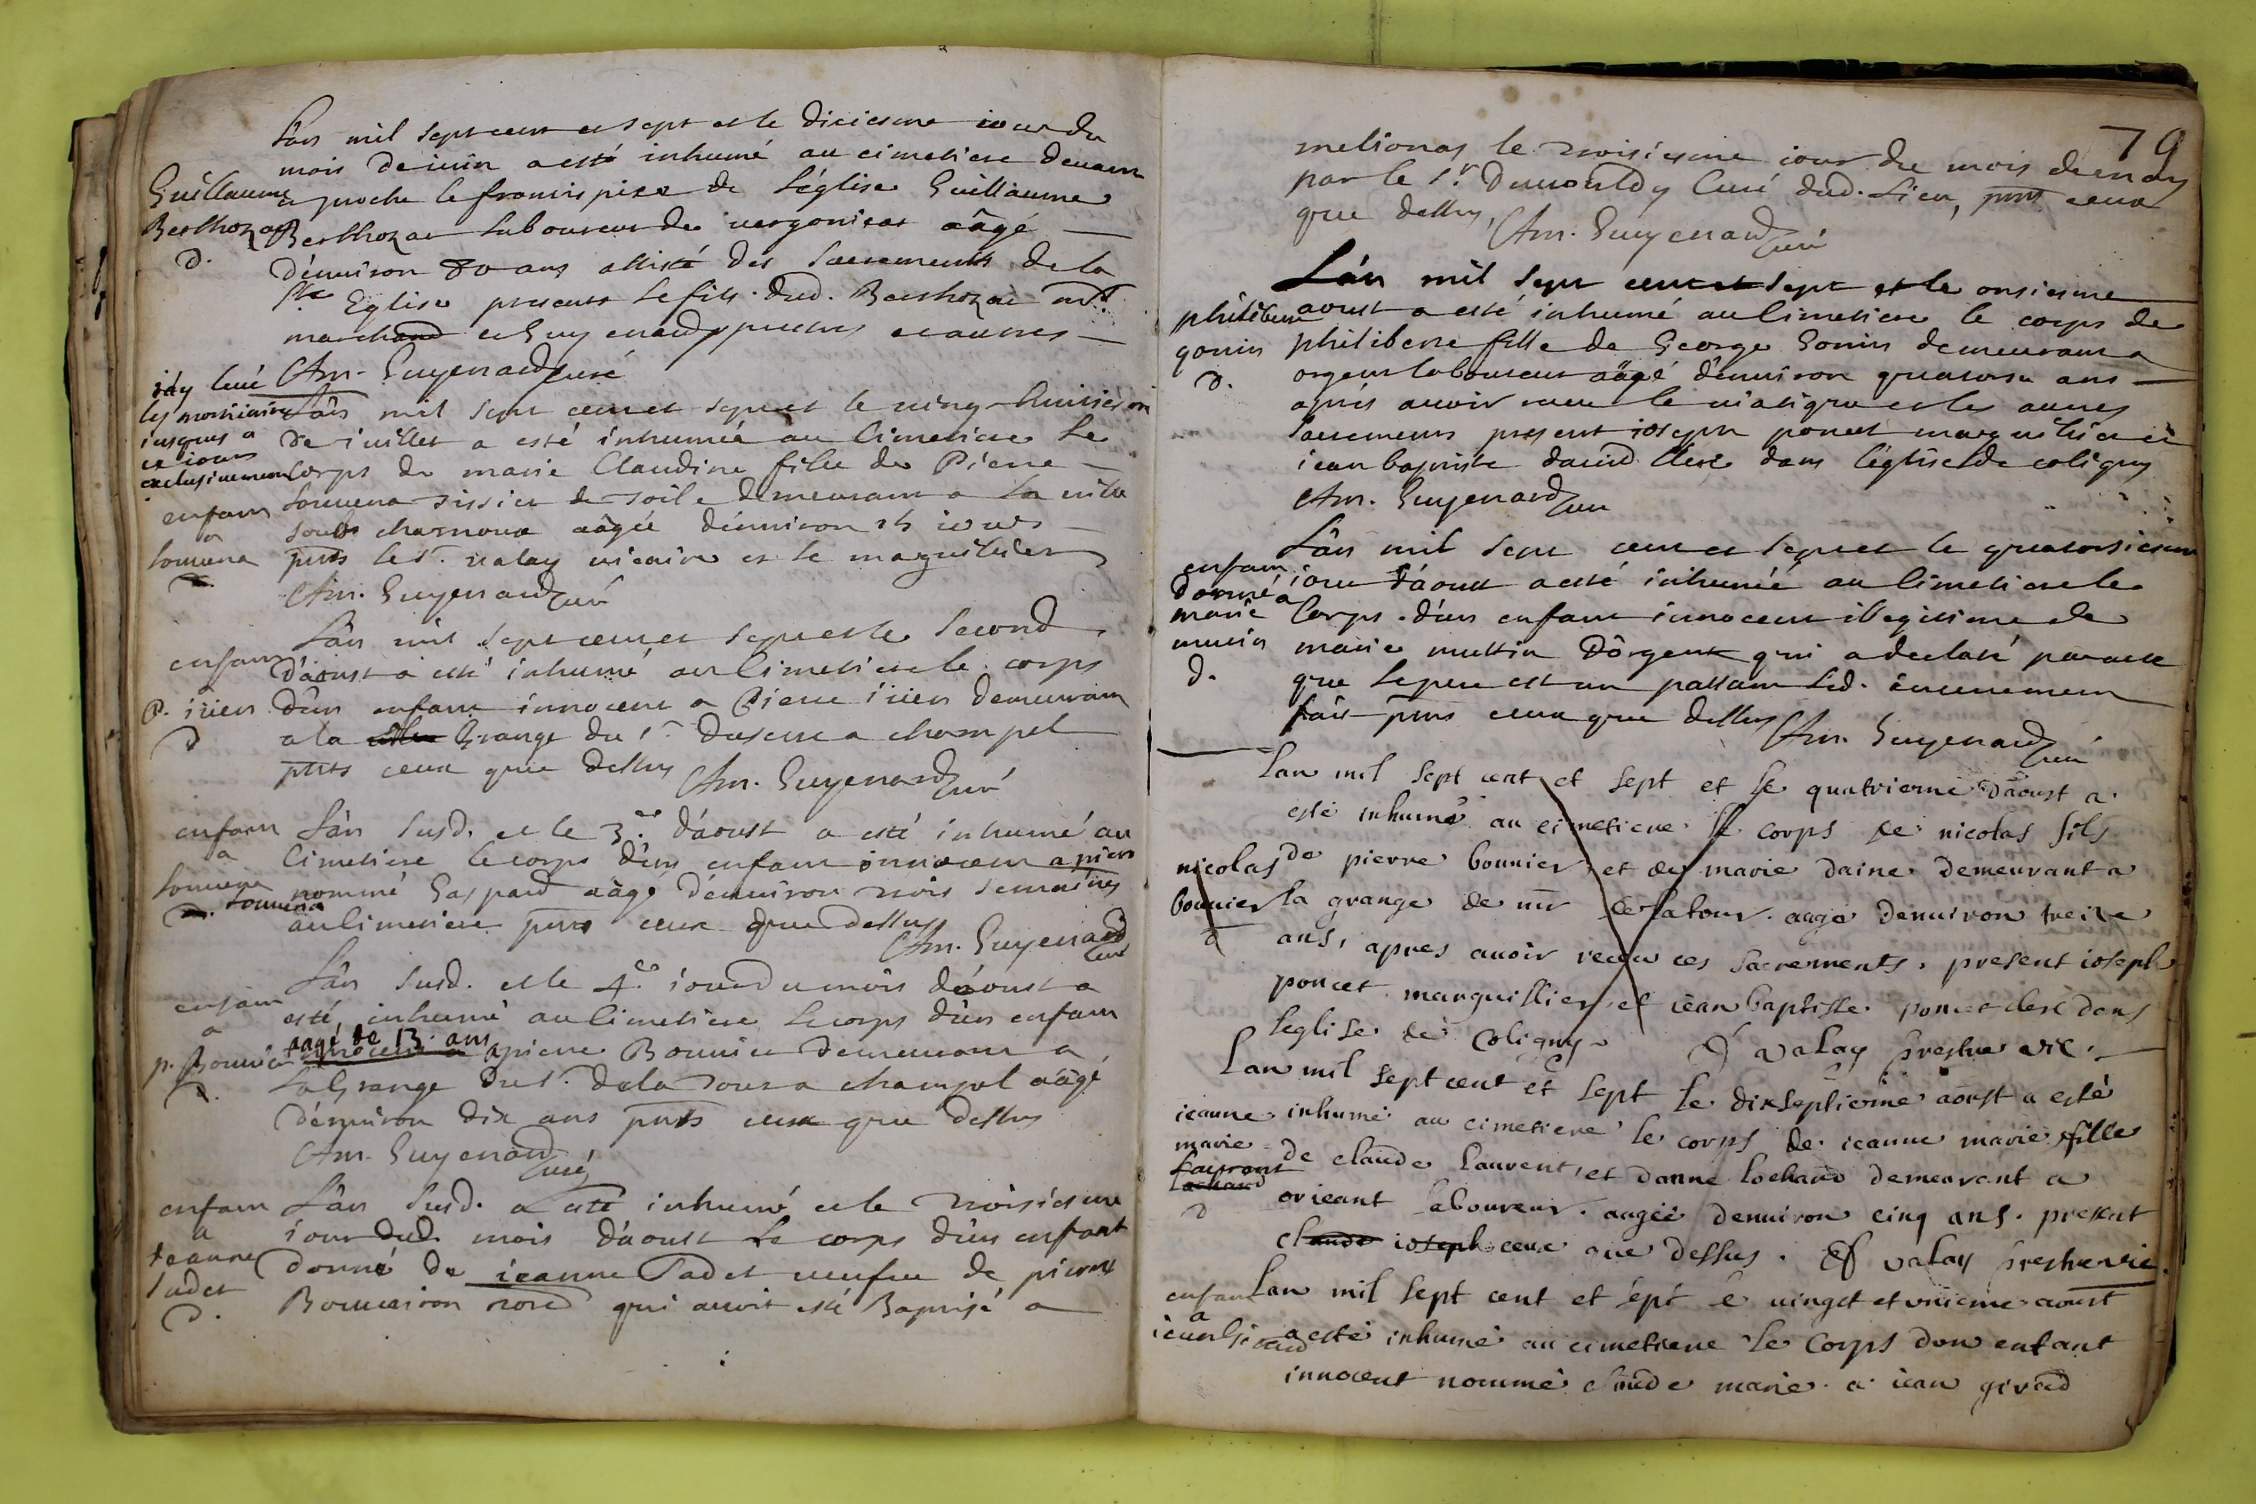 Lân mil sept cent et sept et le diciesme iour du
mois de iuin a esté inhumé au cimetiere devant
Guillaume
et proche le frontispice de l'église Guillaume
Berthozat
Berthozat laboureur de vergonjeat aâgé
d.
d'environ 80 ans assisté des sacrements de la
Ste Eglise presents le fils dud. Berthozat
marchand et Guyenard prestres et autres
Am. Guyenard curé
iây levé
les mortuaires
iusques a
ce iour
exclusivement
Lân mil sept cent et sept et le vingt huitiesme
de iuillet a esté inhumée au cimetiere le
corps de marie Claudine fille de Pierre
enfant
a
Somena
d.
Somena tissier de toile demeurant a la ville
soubs charnoux aâgée d'environ 15 iours
pnts le Sr. valay vicaire et le marguilier
Am. Guyenard curé
Lân mil sept cent et sept et le second
enfant
P. irien
d
d'aoust a esté inhumé au cimetiere le corps
d'un enfant innocent a Pierre irien demeurant
a la Grange du Sr. a champel
pnts ceux que dessus Am. Guyenard curé
enfant
a
Somena
d.
Lân susd. et le 3.e d'aoust a esté inhumé au
cimetiere le corps d'un enfant innocent a pierre Somena
nommé Gaspard aâgé d'environ trois semaines
au cimetiere pnts ceux que dessus
Am. Guyenard curé
enfant
a
p. Bonnier
d.
Lân susd. et le 4.e iour du mois d'aoust a
esté inhumé au cimetiere le corps d'un enfant
aagé de 13. ans
innocent a pierre Bonnier demeurant a
la Grange du Sr. de la Tour a champel aâgé
d'environ dix ans pnts ceux que dessus
Am. Guyenard curé
enfant
a
ieanne
tadet
d.
Lân susd. a esté inhumé et le troisiesme
iour dud. mois d'aoust le corps d'un enfant
donné de ieanne Tadet veufve de pierre
qui avoit esté Baptisé a
79
melionas le troisiesme iour du mois de may
par le Sr. Curé dud. Lieu, pnts ceux
que dessus, Am. Guyenard curé
Lân mil sept cent et sept et le onziesme
philiberte
gonin
d.
aoust a esté inhumé au cimetiere le corps de
philiberte fille de George Gonin demeurant a
orgent laboureur aâgé d'environ quatorze ans
aprés avoir receu le viatique et les autres
sacrements present ioseph poncet marguilier et
iean baptiste david Clerc dans l'église de coligny
Am. Guyenard curé
Lân mil sept cent et sept et le quatorsiesme
enfant
donné a
marie
mutin
d.
iour d'aoust a esté inhumée au cimetiere le
Corps d'un enfant innocent illegitime de
marie muttin d'orgent qui a declaré
que le pere est un passant led. enterrement
fait pnts ceux que dessus Am. Guyenard curé
Lan mil sept cent et sept et le quatrieme d'aoust a
esté inhumé au cimetiere le corps de nicolas fils
nicolas
bonnier
d
de pierre bonnier et de marie daine demeurant a
la grange de mr de la tour aagé denviron treize
ans, apres avoir receu ces sacrements, present ioseph
poncet marguillier et iean baptiste poncet clerc dans
leglise de Coligny valay prestre vic.
Lan mil sept cent et sept le dixseptieme aoust a esté
ieanne
marie
Laurent
d
inhumé au cimetiere le corps de ieanne marie fille
de claude Laurent, et danne lochard demeurant a
orieant laboureur. aagée denviron cinq ans. present
claude ioseph ceux que dessus. valay prestre vic.
enfant
a
Lan mil sept cent et sépt le vingt et unieme aoust
a esté inhumé au cimetiere le Corps don enfant
innocent nommé claude marie a iean girard